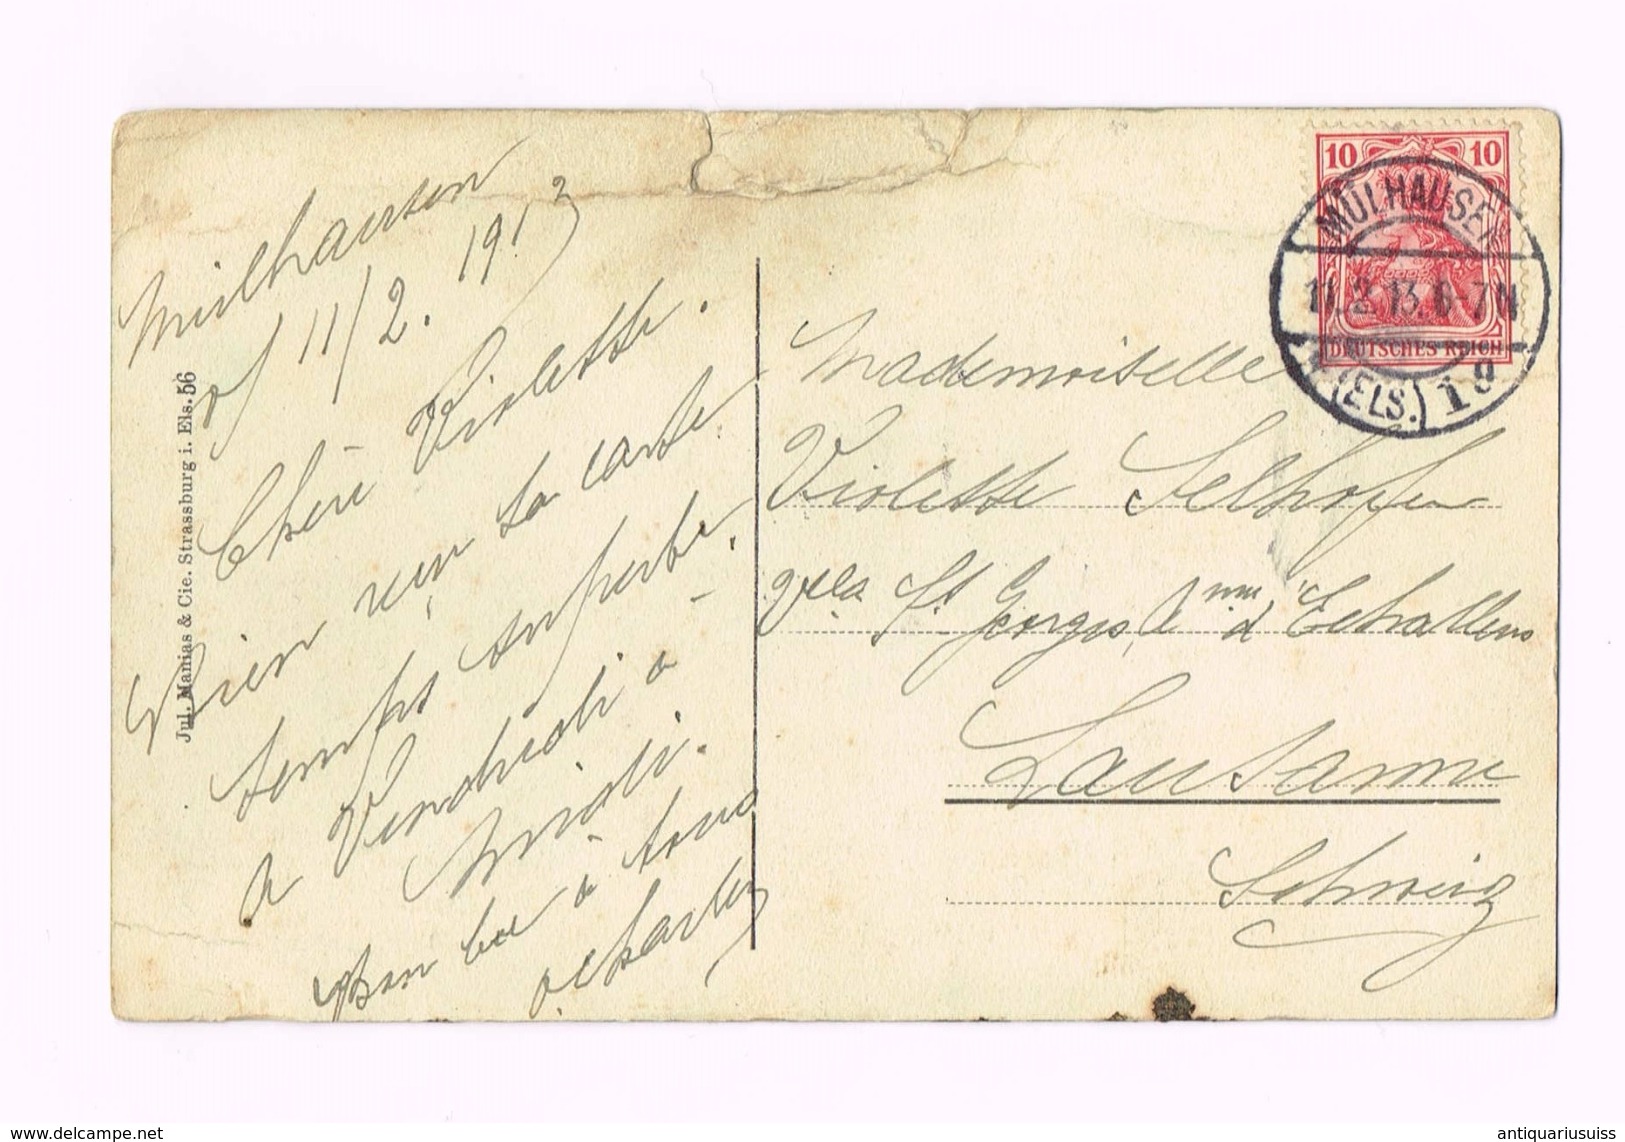 Mulhausen
11/2. 1913
Chère Violette.
Bien reçu ta carte.
temps superbe,
à Vendredi à
midi.
Bon bec à tous
Charley
Mademoiselle
Violette Selhofer
Villa St Georges, d'Echallens
Lausanne
Schweiz
10 10
DEUTSCHES REICH
MÜLHAUSEN
11.2.13.6-7N
(ELS.) 1 g
Jul. Manias & Cie. Strassburg i. Els. 56
www.delcampe.net
antiquariusuiss